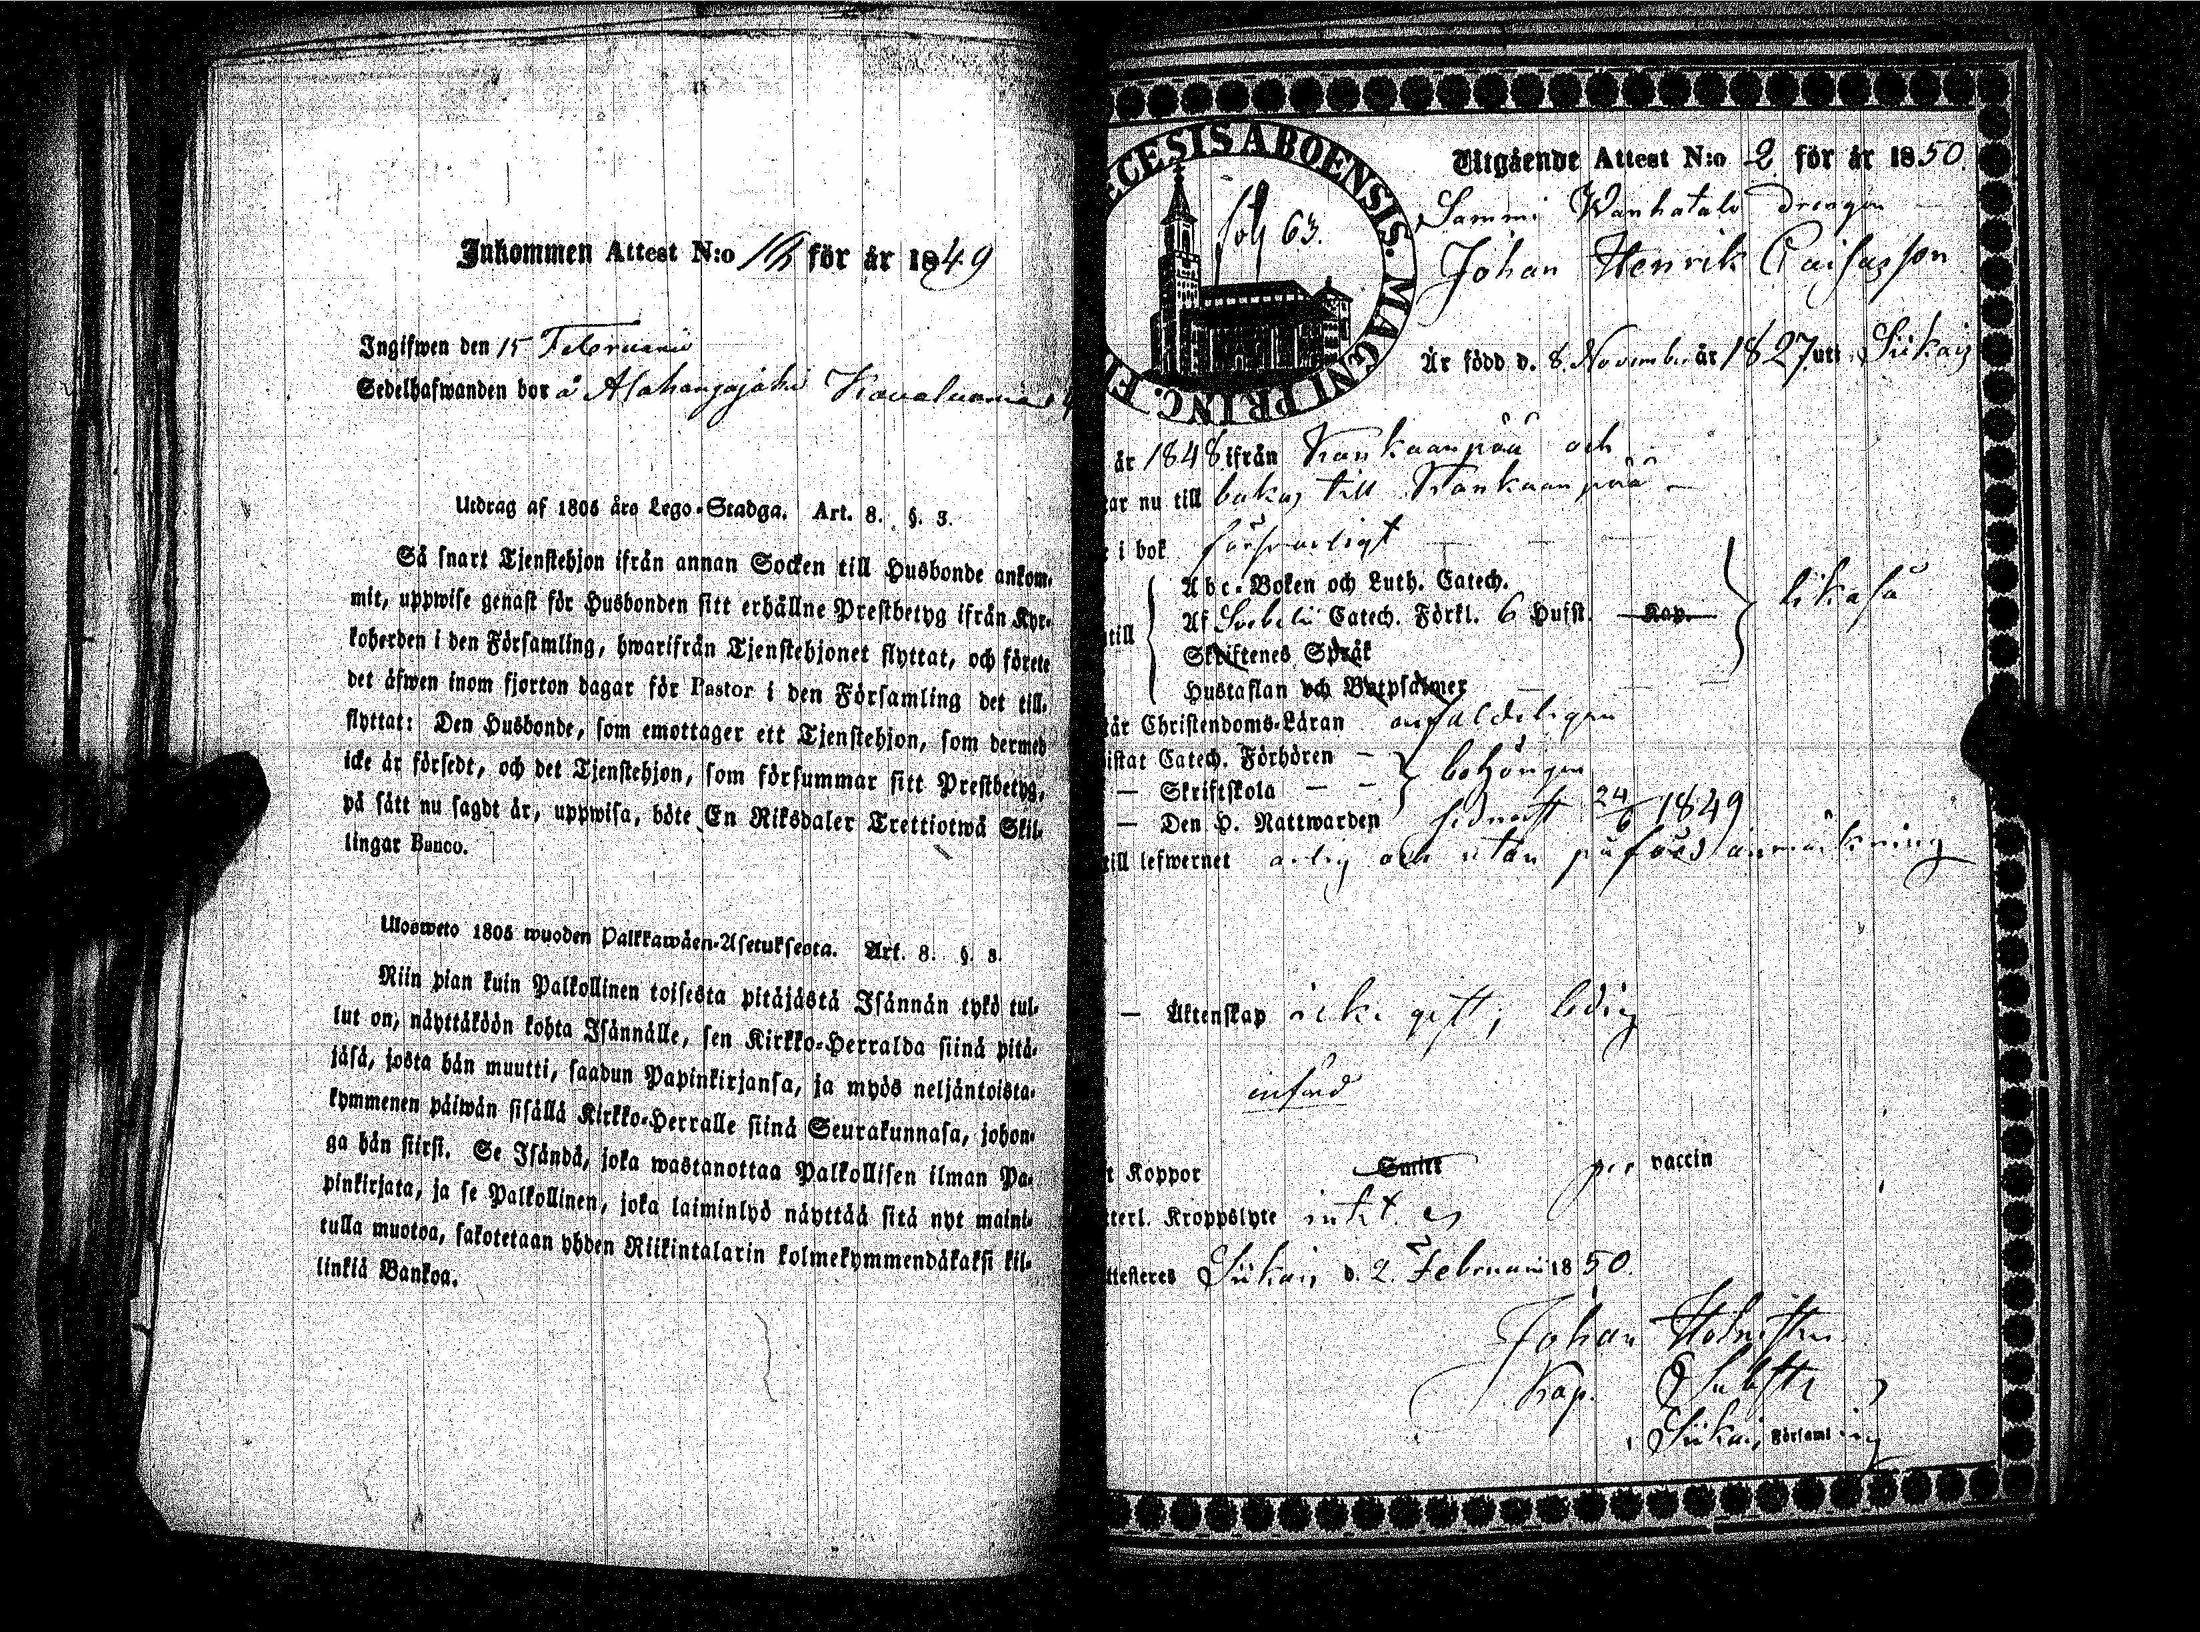 Inkommen Attest N:o för år 1849
Ingifwen den 15 Februarii
Sedelhafwanden bor å Alahongajoki
Utdrag af 1805 års Lego-Stadga. Art. 8. §. 3.
Så snart Tjenstehjon ifrån annan Socken till Husbonde ankom-
mit, uppwise genast för Husbonden sitt erhållne Prestbetyg ifrån Kyr-
koherden i den Församling, hwarifrån Tjenstehjonet flyttat, och förete
det äfwen inom fjorton dagar för Pastor i den Församling det till-
flyttat: Den Husbonde, som emottager ett Tjenstehjon, som dermed
icke är försedt, och det Tjenstehjon, som försummar sitt Prestbetyg,
på sätt nu sagdt är, uppwisa, böte En Riksdaler Trettiotwå Skil-
lingar Banco.
Ulosweto 1805 wuoden Palkkawäen-Asetuksesta. Art. 8. §. 3.
Niin pian kuin Palkollinen toisesta pitäjästä Isännän tykö tul-
lut on, näyttäköön kohta Isännälle, sen Kirkko-Herralda siinä pitä-
jäsä, josta hän muutti, saadun Papinkirjansa, ja myös neljäntoista-
kymmenen päiwän sisällä Kirkko-Herralle siinä Seurakunnasa, johon-
ga hän siirsi. Se Isändä, joka wastanottaa Palkollisen ilman Pa-
pinkirjata, ja se Palkollinen, joka laiminlyö näyttää sitä nyt maini-
tulla muotoa, sakotetaan yhden Riikintalarin kolmekymmendäkaksi kil-
linkiä Bankoa.
ECESIS ABOENSIS. MAGNI PRINC. FI
fol 63.
Utgående Attest N:o 2 för år 1850.
Sammi Wanhatalo drengen
Johan Henrik
Är född d. 8 November år 1827 uti Siikais
år 1848 ifrån Kankaanpää och
ar nu till bakas till Kankaanpää
i bok försvarligt
Abc-Boken och Luth. Catech.
till
Af Svebelii Catech. Förkl. 6 Hufst. Kap.
likaså
Skriftenes Språk
Hustaflan och Botpsalmer
år Christendoms-Läran enfaldeligen
istat Catech. Förhören
— Skriftskola — — behörigen
— Den H. Nattwarden sednast 24/6 1849
till lefwernet ärlig och utan påförd anmärkning
— Äktenskap icke gift, ledig
införd
t Koppor Smitt per vaccin
tterl. Kroppslyte intet
ttesteres Siikais d. 2 Februarii 1850.
Johan
Kap.
Siikais Församling